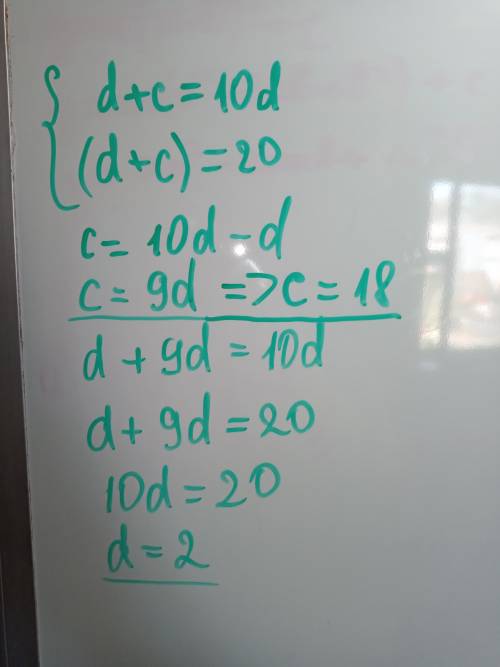 d+c=10d
(d+c)=20
c=10d-d
c=9d =>c=18
d+9d=10d
d+9d=20
10d=20
d=2